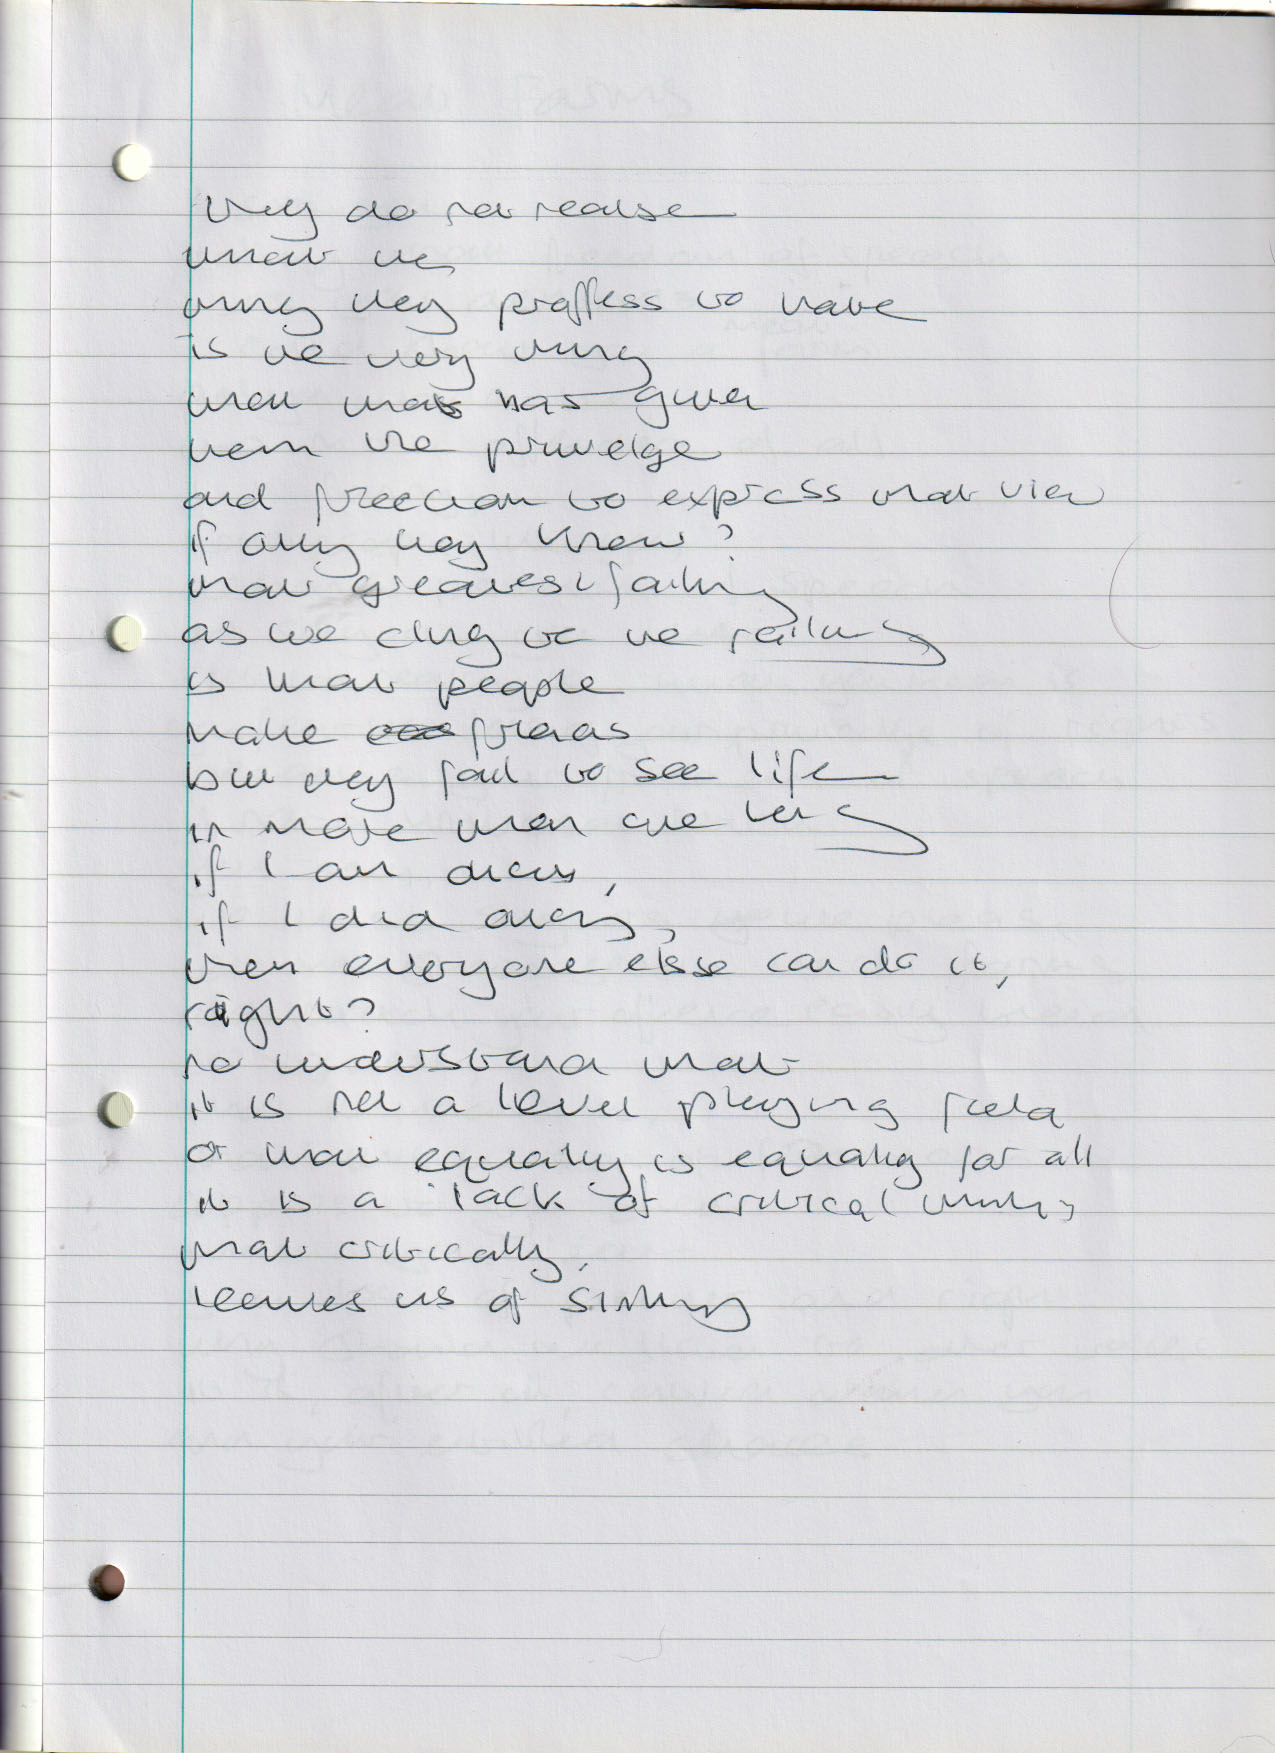 they do not realise
that the
thing they proffess to have
is the very thing
that that has given
them the priveldge
and freedom to express that view
if only they knew?
that greatest failing
as we cling to the railing
is that people
make friends
but they fail to see life
in more than one
if I can
if I did
then everyone else can do it,
right?
no understand that
it is not a level playing field
or that equality is equality for all
it is a lack of critical thinking
that critically,
leaves us of sinking